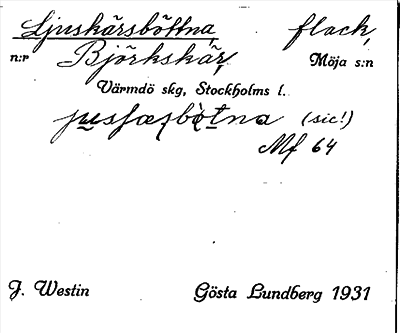 Ljuskärsböttna, flack,
n:r Björkskär, Möja s:n
Värmdö skg, Stockholms l.
(sic!)
Mf 64
J. Westin Gösta Lundberg 1931